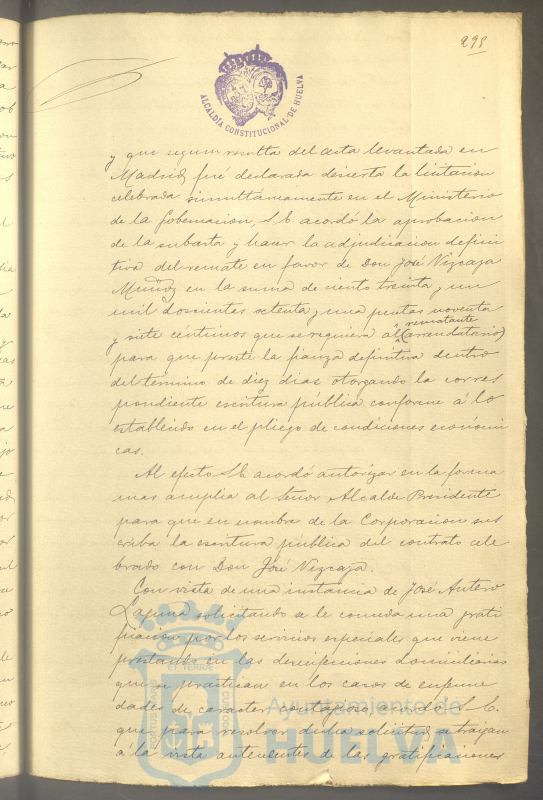 295
ALCALDÍA CONSTITUCIONAL DE HUELVA
y que segun resulta del acta levantada en
Madrid fué declarada desierta la licitacion
celebrada simultáneamente en el Ministerio
de la Gobernacion, S.E. acordó la aprobacion
de la subasta y hacer la adjudicacion defini
tiva del remate en favor de Don José Vizcaya
Muñoz en la suma de ciento treinta y un
mil doscientas setenta y una pesetas noventa
rematante
y siete céntimos que se requiera al (arrendatario)
para que preste la fianza definitiva dentro
del término de diez dias otorgando la corres
pondiente escritura pública conforme á lo
establecido en el pliego de condiciones económi
cas.
Al efecto S.E. acordó autorizar en la forma
mas amplia al Señor Alcalde Presidente
para que en nombre de la Corporacion sus
criba la escritura pública del contrato cele
brado con Don José Vizcaya.
Con vista de una instancia de José Antero
Laguna solicitando se le conceda una grati
ficacion por los servicios especiales que viene
prestando en las desinfecciones domiciliarias
que se practican en los casos de enferme
dades de carácter contagioso, acordó S.E.
que para resolver dicha solicitud se traigan
á la vista antecedentes de las gratificaciones
Ayuntamiento de
HUELVA